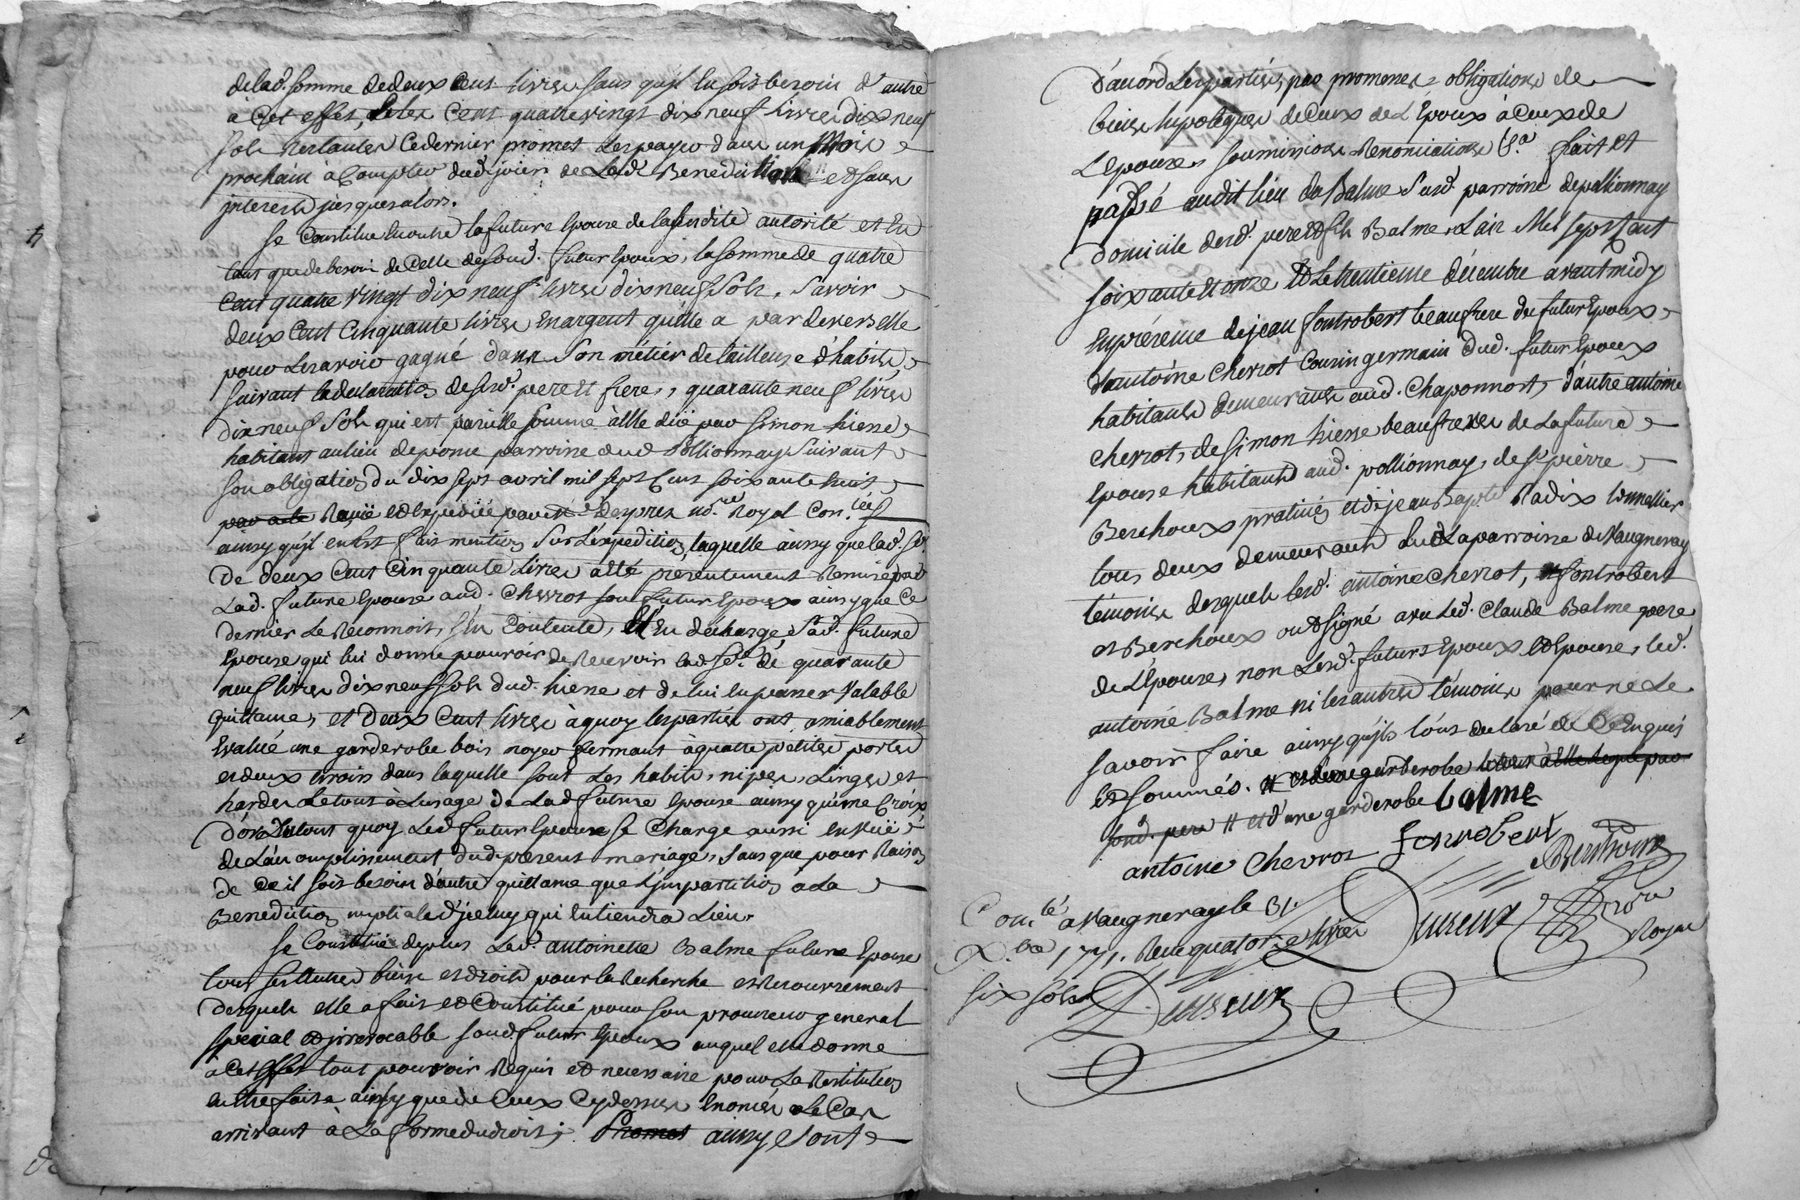 delad. somme de deux cent livres sans quil en soit besoin d'autre
à cet effet, et les cent quatre vingt dix neuf livres dix neuf
sols restantes ce dernier promet les payer dans un mois
prochain à compter dud. jour de lad. Benediction et sans
interets jusques alors.
Se constitue en outre la future epouse de la susdite autorité et en
tant que de besoin de celle de sond. futur epoux, la somme de quatre
cent quatre vingt dix neuf livres dix neuf sols, savoir
deux cent cinquante livres en argent qu'elle a par devers elle
pour les avoir gagné dans son métier de tailleuse d'habits,
suivant la declaration de sesd. pere et frere, quarante neuf livres
dix neuf sols qui est pareille somme à elle düe par Simon hierre
habitant au lieu de ponce parroisse dud. Pollionnay suivant
son obligation du dix sept avril mil sept cent soixante huit
par acte Reçüe et expediée par Me Despres no.re Royal con.lée
ainsy quil en est fait mention sur l'expedition, laquelle ainsy que lad. so.e
de deux cent cinquante livres a été presentement Remise par
lad. future epouse aud. Chevrot son futur epoux ainsy que ce
dernier le Reconnoit, s'en contente, et en decharge sad. future
epouse qui lui donne pouvoir de Recevoir lad. so.e de quarante
neuf livres dix neuf sols dud. hierre et de lui en passer valable
quittance, et deux cent livres à quoy les parties ont amiablement
evalué une garderobe bois noyer fermant à quatre petites portes
et deux tiroirs dans laquelle sont les habits, nipes, linges et
hardes le tout à l'usage de lad. future epouse ainsy qu'une croix
d'or. Du tout quoy led. futur epoux se charge aussi en vüe
de l'accomplissement du present mariage, sans que pour Raison
de ce il soit besoin d'autre quittance que l'impartition de la
Benediction nuptiale d'jcelluy qui en tiendra lieu.
Se constitue de plus lad. antoinette Balme future epouse
tous ses autres biens et droits pour la Recherche et Recouvrement
desquels elle a fait et constitué pour son procureur general
special et irrevocable sond. futur epoux auquel elle donne
à cet effet tout pouvoir Requis et necessaire pour la Restitution
en être faite ainsy que de ceux cy dessus enoncés le cas
arrivant à la forme du droit; Promet ainsy sont
d'accord les parties, par promesses obligations de
biens hypoteques de ceux de l'epoux à ceux de
l'epouse, soumissions Renonciations &a. fait et
passé audit lieu du Balme susd. parroisse de pollionnay
domicile desd. pere et fils Balme. L'an Mil sept cent
soixante et onze et le trentieme décembre avant midy
en présence de jean fontrobert beaufrere du futur epoux,
d'antoine Chevrot cousin germain dud. futur epoux
habitants demeurants aud. Chaponnost, d'autre antoine
Chevrot, de Simon hierre beaufreres de la future
epouse habitants aud. pollionnay, de s.r pierre
Berchoux praticien et de jean Bap.te Radix tonnellier
tous deux demeurants en la parroisse de Vaugneray
témoins desquels lesd. antoine Chevrot, fontrobert
et Berchoux ont signé avec led. Claude Balme pere
de l'epouse, non lesd. futurs epoux et epouse, led.
antoine Balme ni les autres témoins pour ne le
savoir faire ainsy qu'ils l'ont declaré de ce enquis
et sommés.
sond. pere # et d'une garderobe Balme
antoine Chevrot fonrobert Berchoux
Con.lé à Vaugneray le 31.
X.bre 1771. Reçu quatorze livres
six sols
Royal